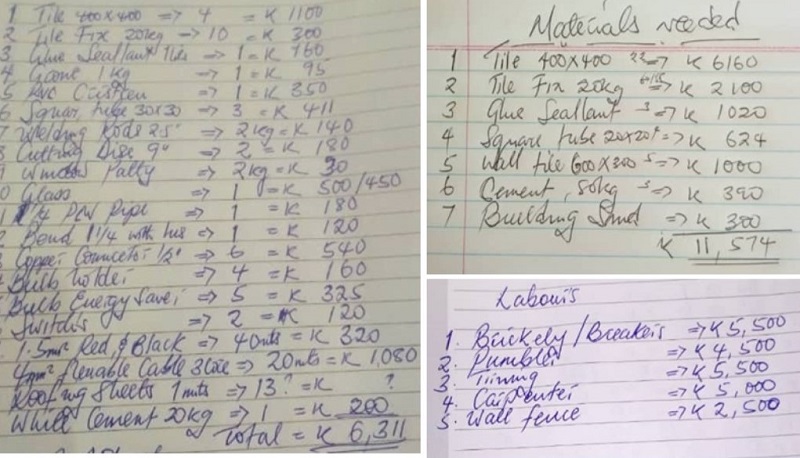 1 Tile 400x400 => 4 = K 1100
2 Tile Fix 20kg -> 10 = K 300
3 Glue Seallant Tiles -> 1 = K 160
4 1kg -> 1 = K 95
5 Pvc => 1 = K 350
6 Square tube 30x30 => 3 = K 411
7 Welding Rods 2.5 => 2kg = K 140
8 Cutting Disc 9" => 2 = K 180
9 Window Patty => 2kg = K 30
0 Glass => 1 = K 500/450
1 1/4 Pipe => 1 = K 180
2 Bend 1 1/4 with => 1 = K 120
3 Copper 1/2" => 6 = K 540
Bulb holder => 4 = K 160
Bulb Energy Saver => 5 = K 325
Switches => 2 = K 120
1.5mm² Red & Black => 40mts = K 320
4mm² Cable 3 Core => 20mts = K 1,080
Roofing Sheets 1mts => 13? = K ?
White Cement 20kg => 1 = K 200
Total = K 6,311
Materials needed
1 Tile 400x400 22 => K 6160
2 Tile Fix 20kg => K 2100
3 Glue Seallant -3 => K 1020
4 Square tube 20x20 => K 624
5 Wall tile 600x300 5 => K 1000
6 Cement, 50kg -3 => K 390
7 Building Sand => K 300
K 11,574
Labours
1. Brickely/Breakers => K 5,500
2. Pumbler => K 4,500
3. => K 5,500
4. Carpenter => K 5,000
5. Wall fence => K 2,500